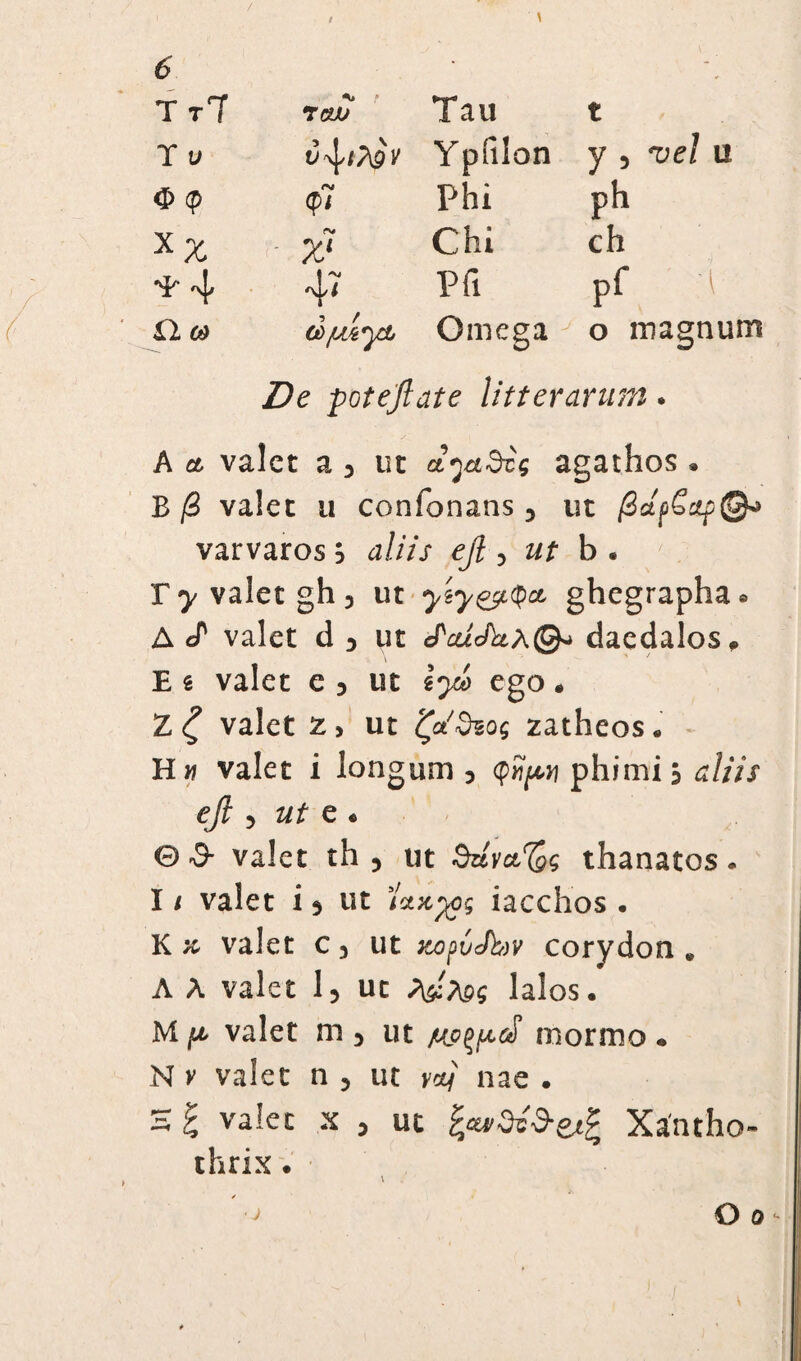 6
Τ τ Ꞇ ταῦ Tau t
Υ υ ὐψιλὸν Ypſilon y , vel u
Φ φ φῖ Phi ph
Χ χ χῖ Chi ch
Ψ ψ ψῖ Pſi pſ
Ω ω ὠμέγα Omega o magnum
De poteſtate litterarum .
Α α valet a , ut ἀγαθὸς agathos .
Β β valet u conſonans , ut βάρϐαρος
varvaros ; aliis eſt , ut b .
Γ γ valet gh , ut γέγραφα ghegrapha .
Δ δ valet d , ut δαίδαλος daedalos .
Ε ε valet e , ut ἐγὼ ego .
Ζ ζ valet z , ut ζάθεος zatheos .
Η η valet i longum , φήμη phimi ; aliis
eſt , ut e .
Θ θ valet th , ut θάνατος thanatos .
Ι ι valet i , ut ἴακχος iacchos .
Κ κ valet c , ut κορύδων corydon .
Λ λ valet l , ut λάλος lalos .
Μ μ valet m , ut μορμώ mormo .
Ν ν valet n , ut ναί nae .
Ξ ξ valet x , ut ξανθόθριξ Xantho-
thrix .
Ο ο